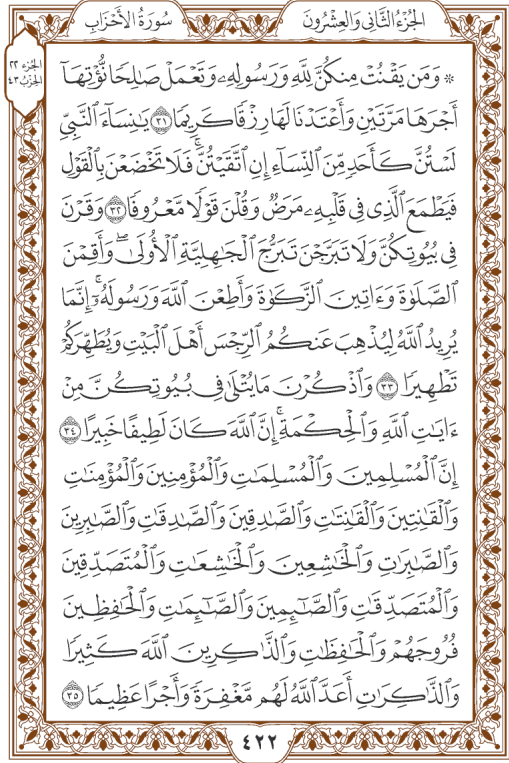 الجُزْءُ الثَّانِي وَالعِشْرُونَ
سُورَةُ الأَحْزَابِ
الجزء ٢٢
الحزب ٤٣
۞ وَمَن يَقْنُتْ مِنكُنَّ لِلَّهِ وَرَسُولِهِۦ وَتَعْمَلْ صَٰلِحًا نُّؤْتِهَآ
أَجْرَهَا مَرَّتَيْنِ وَأَعْتَدْنَا لَهَا رِزْقًا كَرِيمًا ٣١ يَٰنِسَآءَ ٱلنَّبِيِّ
لَسْتُنَّ كَأَحَدٍ مِّنَ ٱلنِّسَآءِ إِنِ ٱتَّقَيْتُنَّۚ فَلَا تَخْضَعْنَ بِٱلْقَوْلِ
فَيَطْمَعَ ٱلَّذِى فِى قَلْبِهِۦ مَرَضٌ وَقُلْنَ قَوْلًا مَّعْرُوفًا ٣٢ وَقَرْنَ
فِى بُيُوتِكُنَّ وَلَا تَبَرَّجْنَ تَبَرُّجَ ٱلْجَٰهِلِيَّةِ ٱلْأُولَىٰۖ وَأَقِمْنَ
ٱلصَّلَوٰةَ وَءَاتِينَ ٱلزَّكَوٰةَ وَأَطِعْنَ ٱللَّهَ وَرَسُولَهُۥٓۚ إِنَّمَا
يُرِيدُ ٱللَّهُ لِيُذْهِبَ عَنكُمُ ٱلرِّجْسَ أَهْلَ ٱلْبَيْتِ وَيُطَهِّرَكُمْ
تَطْهِيرًا ٣٣ وَٱذْكُرْنَ مَا يُتْلَىٰ فِى بُيُوتِكُنَّ مِنْ
ءَايَٰتِ ٱللَّهِ وَٱلْحِكْمَةِۚ إِنَّ ٱللَّهَ كَانَ لَطِيفًا خَبِيرًا ٣٤
إِنَّ ٱلْمُسْلِمِينَ وَٱلْمُسْلِمَٰتِ وَٱلْمُؤْمِنِينَ وَٱلْمُؤْمِنَٰتِ
وَٱلْقَٰنِتِينَ وَٱلْقَٰنِتَٰتِ وَٱلصَّٰدِقِينَ وَٱلصَّٰدِقَٰتِ وَٱلصَّٰبِرِينَ
وَٱلصَّٰبِرَٰتِ وَٱلْخَٰشِعِينَ وَٱلْخَٰشِعَٰتِ وَٱلْمُتَصَدِّقِينَ
وَٱلْمُتَصَدِّقَٰتِ وَٱلصَّٰٓئِمِينَ وَٱلصَّٰٓئِمَٰتِ وَٱلْحَٰفِظِينَ
فُرُوجَهُمْ وَٱلْحَٰفِظَٰتِ وَٱلذَّٰكِرِينَ ٱللَّهَ كَثِيرًا
وَٱلذَّٰكِرَٰتِ أَعَدَّ ٱللَّهُ لَهُم مَّغْفِرَةً وَأَجْرًا عَظِيمًا ٣٥
٤٢٢